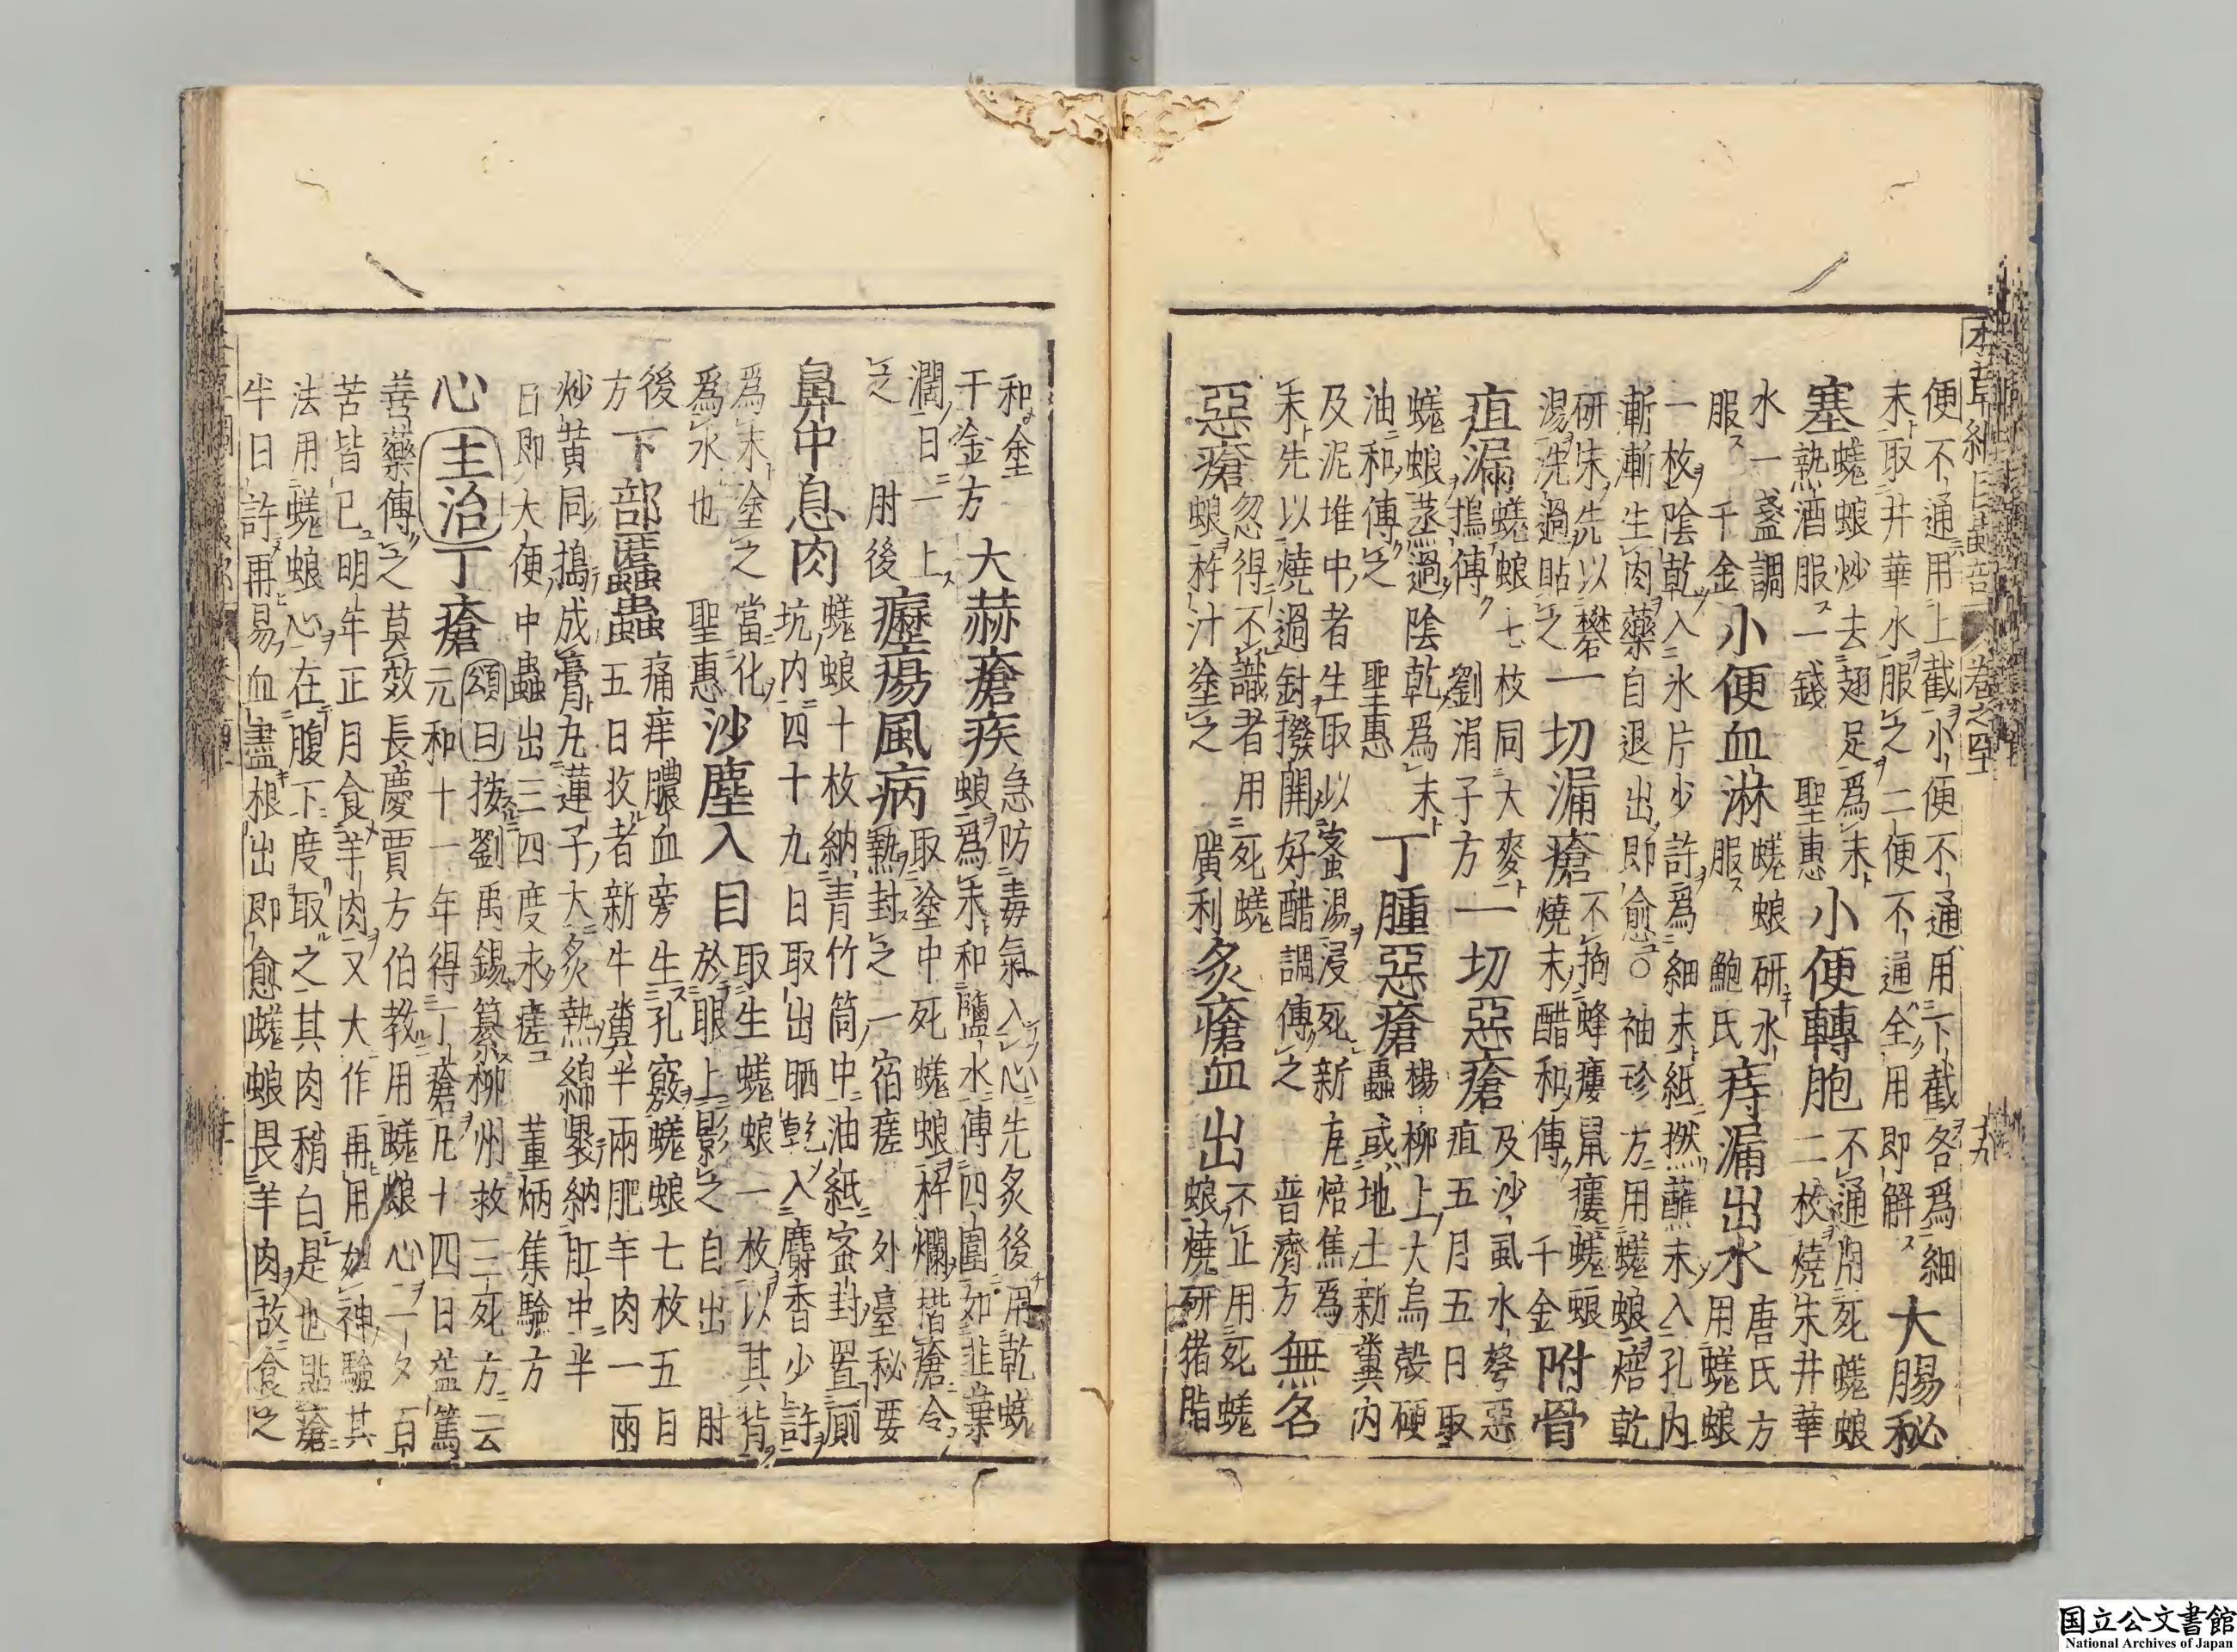 卷之四十一 十九
便不通用上截小便不通用下截各爲細
末取井華水服之二便不通全用即解
大腸秘
塞
蜣蜋炒去翅足爲末
熱酒服一錢 聖惠
小便轉胞
不通用死蜣蜋
二枚燒末井華
水一盞調
服 千金
小便血淋
蜣蜋研水
服 鮑氏
痔漏出水
唐氏方
用蜣蜋
一枚陰乾入氷片少許爲細末紙撚蘸末入孔内
漸漸生肉藥自退出即愈○袖珍方用蜣蜋焙乾
研末先以礬
湯洗過貼之
一切漏瘡
不拘蜂瘻鼠瘻蜣蜋
燒末醋和傅 千金
附骨
疽漏
蜣蜋七枚同大麥
搗傅 劉涓子方
一切惡瘡
及沙虱水弩惡
疽五月五日取
蜣蜋蒸過陰乾爲末
油和傅之 聖惠
丁腫惡瘡
楊柳上大烏殼硬
蟲或地上新糞内
及泥堆中者生取以蜜湯浸死新瓦焙焦爲
末先以燒過針撥開好醋調傅之 普濟方
無名
惡瘡
忽得不識者用死蜣
蜋杵汁塗之 廣利
灸瘡血出
不止用死蜣
蜋燒研猪脂
和塗
千金方
大赫瘡疾
急防毒氣入心先灸後用乾蜣
蜋爲末和鹽水傅四圍如韭葉
濶日一上
之 肘後
癧瘍風病
取塗中死蜣蜋杵爛揩瘡令
熱封之一宿瘥 外臺秘要
鼻中息肉
蜣蜋十枚納青竹筒中油紙密封置厠
坑内四十九日取出晒乾入麝香少許
爲末塗之當化
爲水也 聖惠
沙塵入目
取生蜣蜋一枚以其背
於眼上影之自出 肘
後
方
下部䘌蟲
痛痒膿血旁生孔竅蜣蜋七枚五月
五日收者新牛糞半兩肥羊肉一兩
炒黄同搗成膏丸蓮子大炙熱綿裹納肛中半
日即大便中蟲出三四度永瘥 董炳集驗方
心 主治丁瘡
頌曰按劉禹錫纂柳州救三死方云
元和十一年得丁瘡凡十四日益篤
善藥傅之莫效長慶賈方伯教用蜣蜋心一夕百
苦皆已明年正月食羊肉又大作再用如神驗其
法用蜣蜋心在腹下度取之其肉稍白是也點瘡
半日許再易血盡根出即愈蜣蜋畏羊肉故食之
国立公文書館
National Archives of Japan